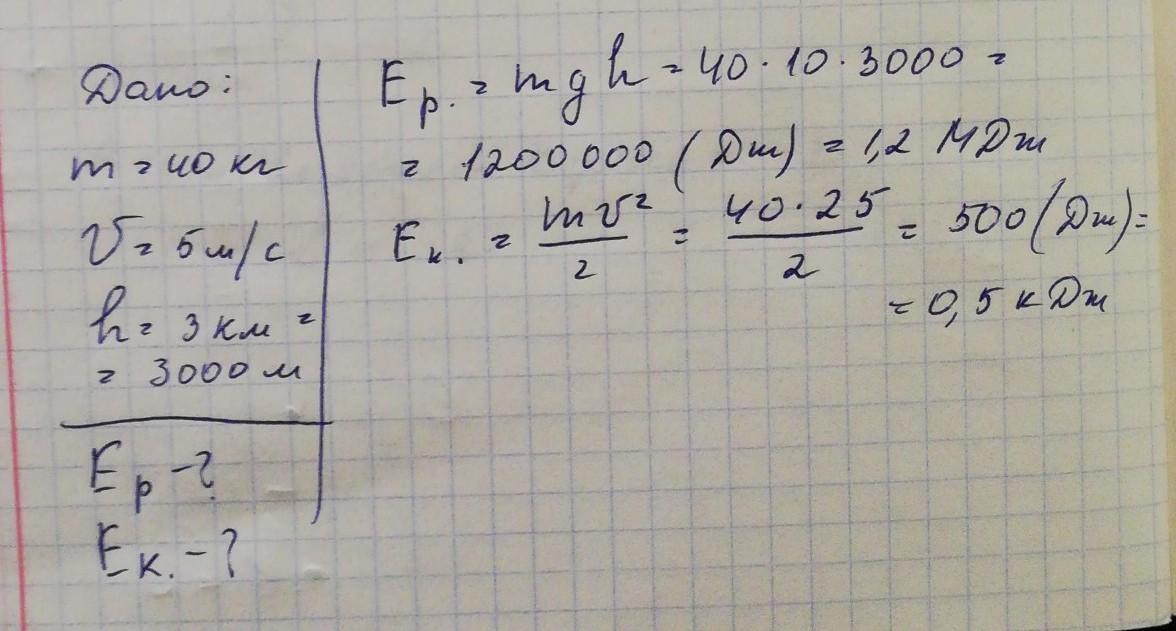 Дано:
m = 40 кг
v = 5 м/с
h = 3 км =
= 3000 м
Ep - ?
Eк. - ?
Ep. = mgh = 40 · 10 · 3000 =
= 1200000 (Дж) = 1,2 МДж
Eк. = mv²/2 = 40·25/2 = 500 (Дж) =
= 0,5 кДж